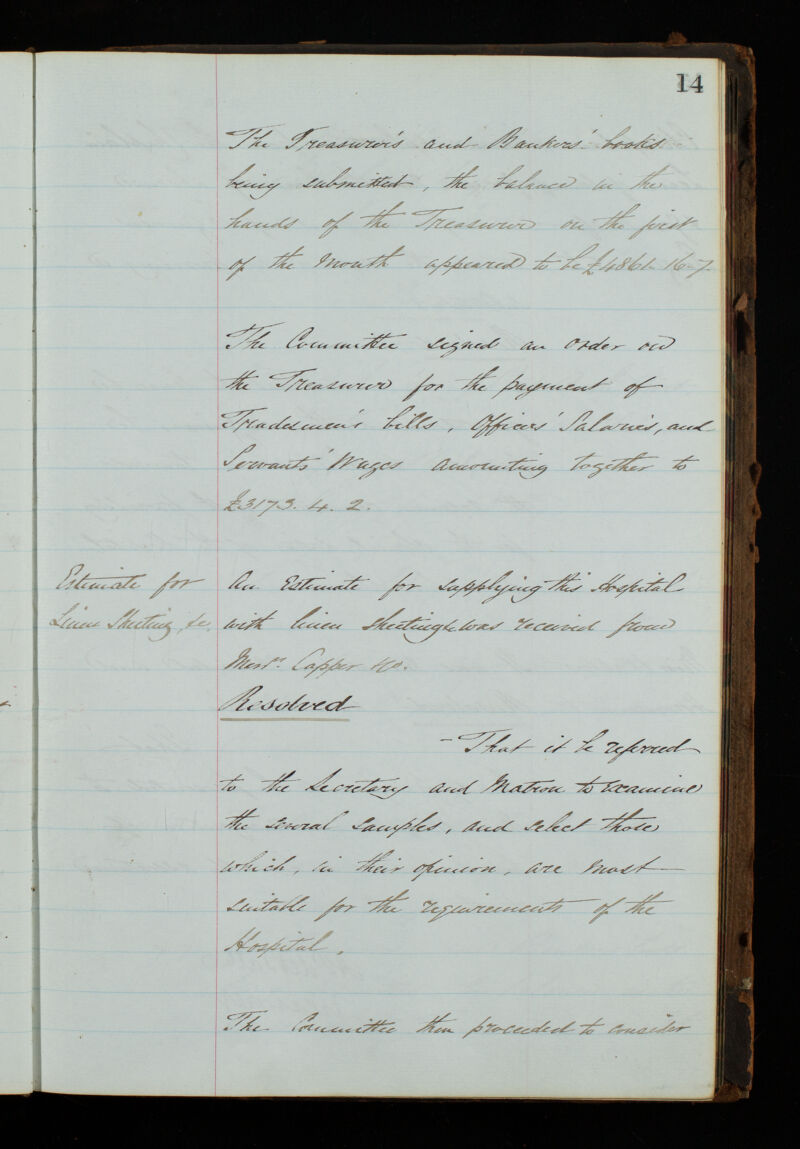 14
The Treasurer's and Bankers' books
being submitted, the balance in the
hands of the Treasurer on the first
of the Month appeared to be £4861-16-7.
The Committee signed an Order on
the Treasurer for the payment of
Tradesmen's bills, Officers' Salaries, and
Servants' Wages amounting together to
£3173. 4. 2.
Estimate for
Linen Sheeting, &c.
An Estimate for supplying this Hospital
with linen sheeting &c was received from
Messrs. Capper &Co.
Resolved
- That it be referred
to the Secretary and Matron to examine
the several samples, and select those
which, in their opinion, are most
suitable for the requirements of the
Hospital.
The Committee then proceeded to consider